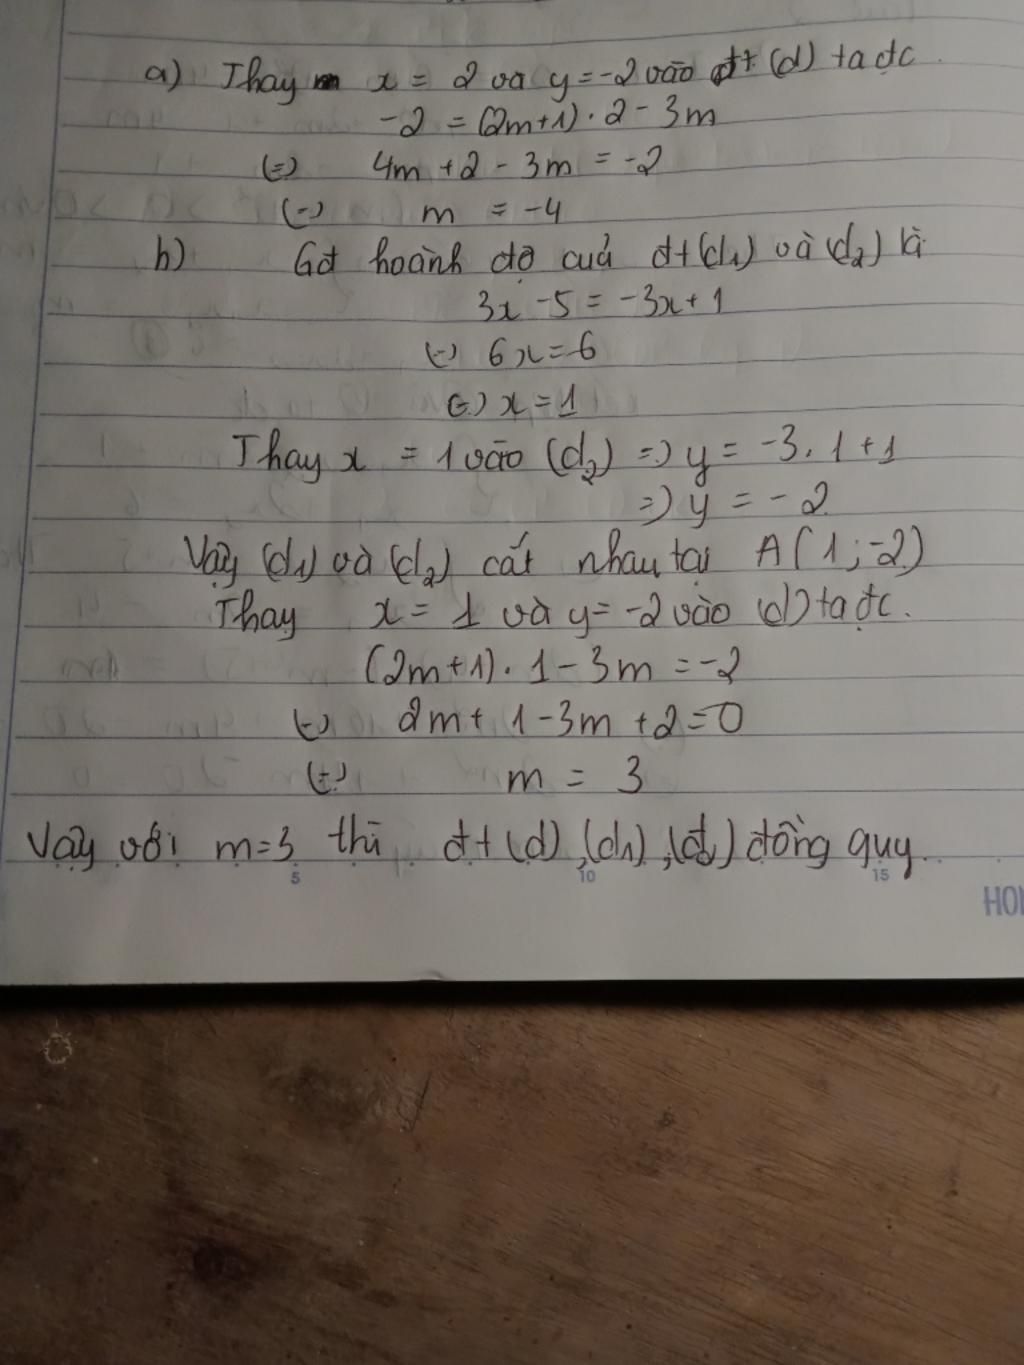 a) Thay x = 2 và y = -2 vào đt (d) ta đc
-2 = (2m+1) . 2 - 3m
(=) 4m + 2 - 3m = -2
(=) m = -4
b) Gđ hoành độ cuả đt (d1) và (d2) là
3x - 5 = -3x + 1
(=) 6x = 6
(=) x = 1
Thay x = 1 vào (d2) => y = -3 . 1 + 1
=> y = -2
Vậy (d1) và (d2) cắt nhau tại A(1 ; -2)
Thay x = 1 và y = -2 vào (d) ta đc.
(2m+1) . 1 - 3m = -2
(=) 2m + 1 - 3m + 2 = 0
(=) m = 3
Vậy với m = 3 thì đt (d), (d1), (d2) đồng quy.
5 10 15